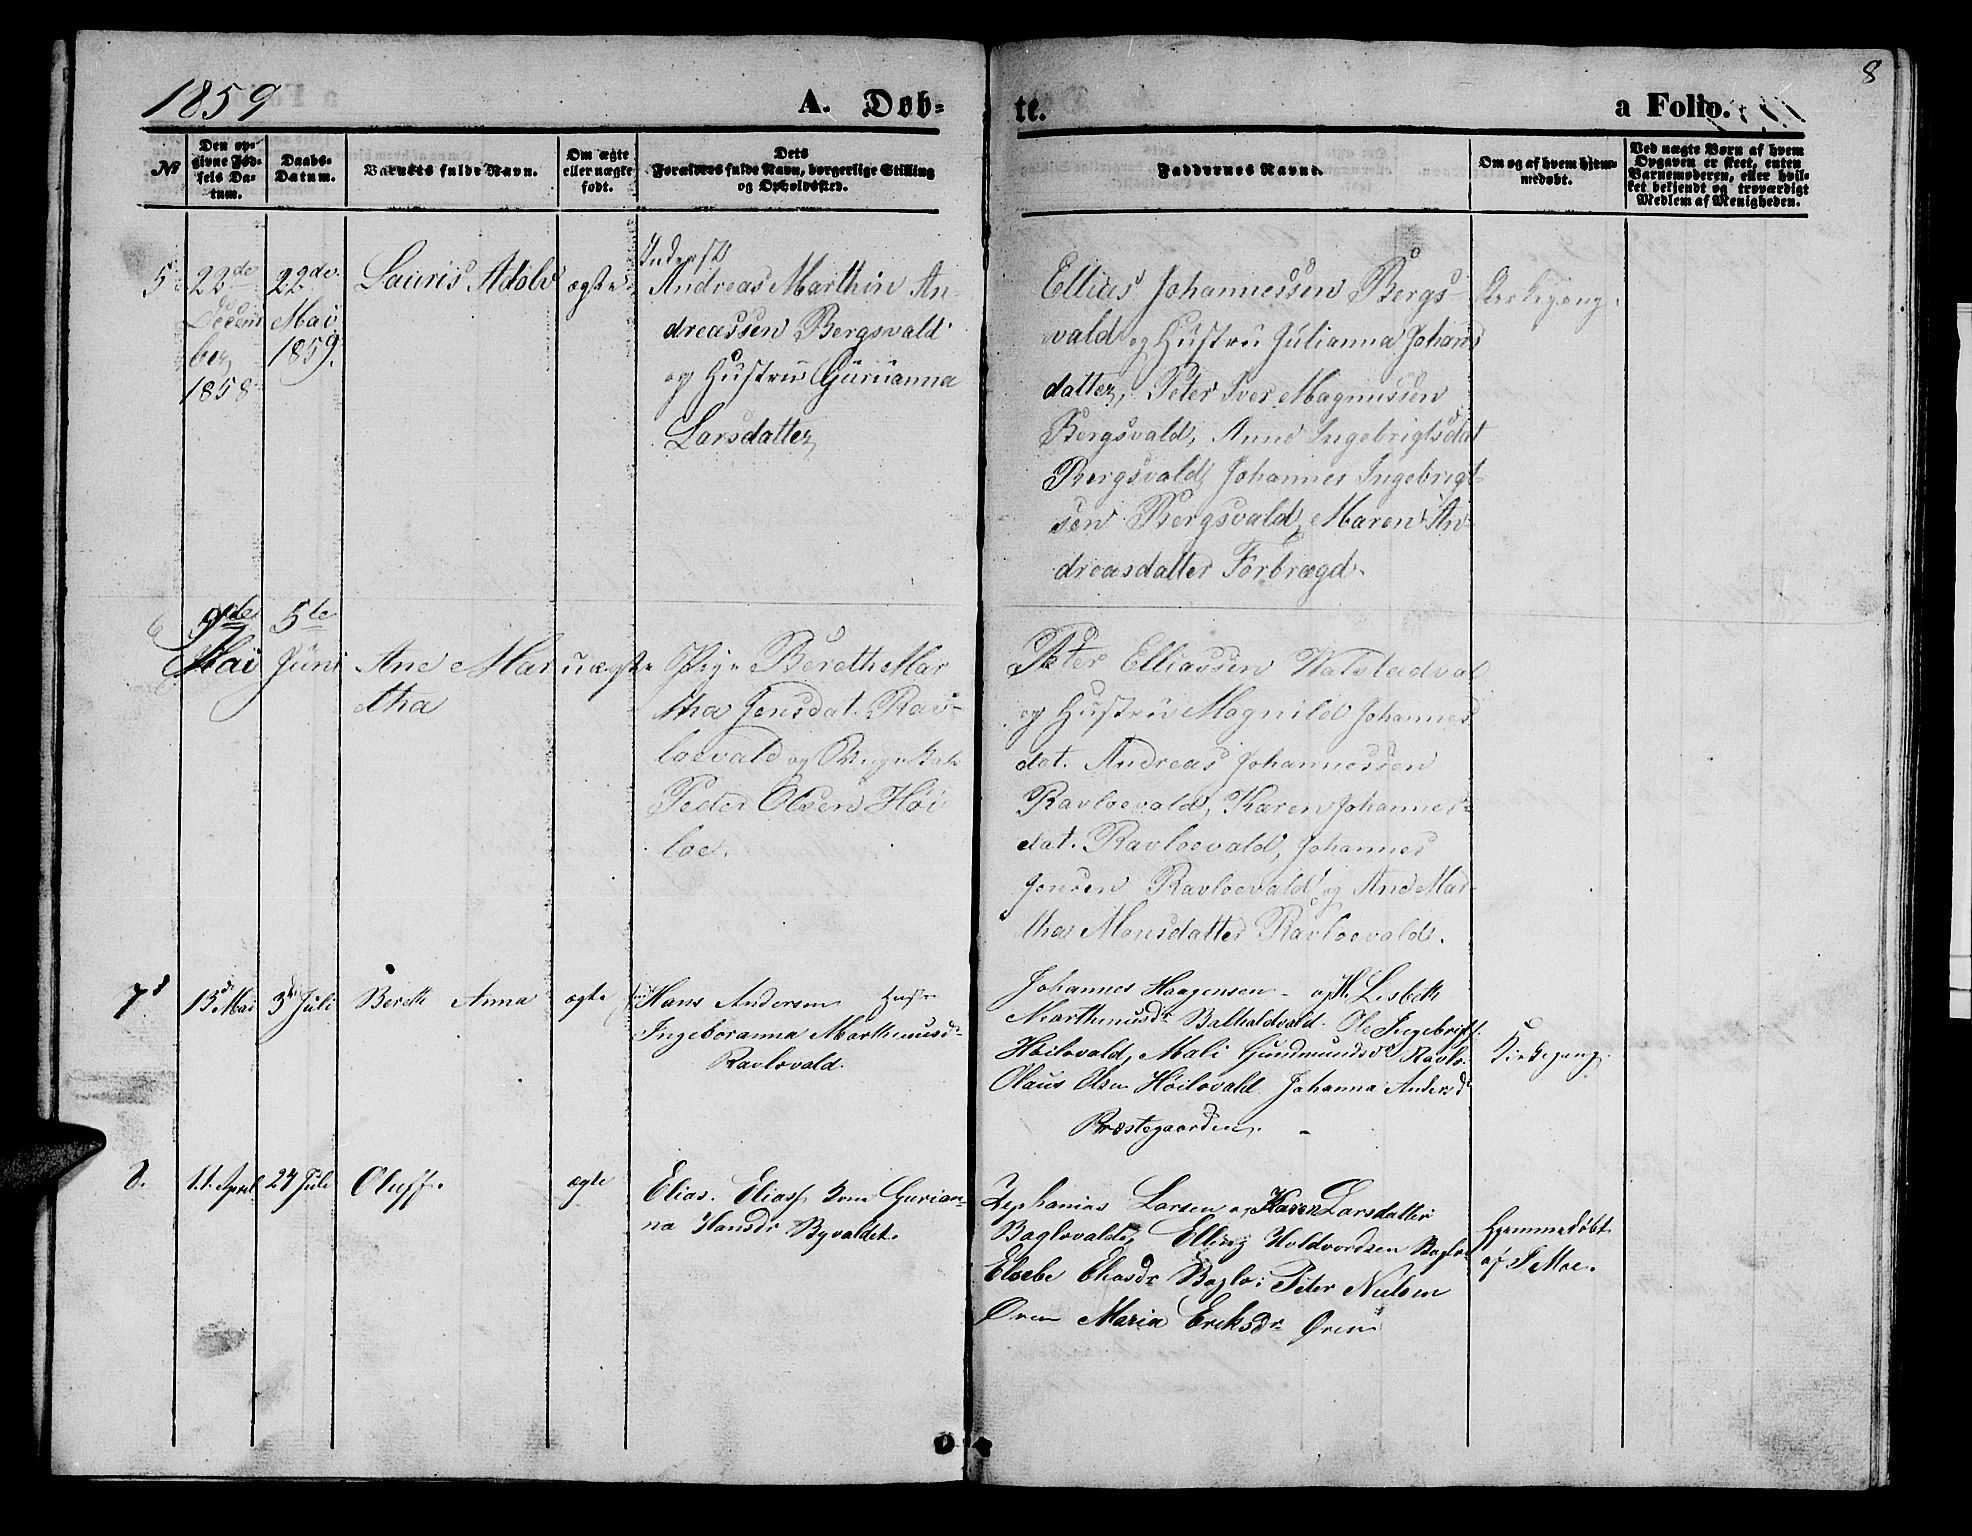 8
1859 A. Døb- te. a Folio.
No
Den op-
givne Fød-
sels Da-
tum.
Daabs-
Datum.
Barnets fulde Navn.
Om ægte
eller uægte
født.
Dets
Forældres fulde Navn, borgerlige Stilling
og Opholdssted.
Faddernes Navne.
Om og af hvem hjem-
medøbt.
Ved uægte Børn af hvem
Opgaven er skeet, enten
Barnemoderen, eller hvil-
ket bekjendt og troværdigt
Medlem af Menigheden.
5
22de
Decem
ber
1858
22de
Mai
1859.
Lauris Adolv
ægte
Inderst
Andreas Marthin An-
dreassen Bergsvald
og Hustru Gurianna
Larsdatter
Ellias Johannessen Bergs-
vald og Hustru Julianna Johans
datter, Peter Iver Magnussen
Bergsvald, Anne Ingebrigtsdat
Bergsvald, Johannes Ingebrigt-
sen Bergsvald, Maren An-
dreasdatter Forbrægd.
Kirkegang.
6
9de
Mai
5te
Juni
Ane Mar
tha
uægte
Pige Bereth Mar
tha Jonsdat. Rav-
loevald og Ungkarl
Peter Olsen Høi
loe.
Peter Elliassen Valstadval
og Hustru Magnild Johannes
dat. Andreas Johannessen
Ravloevald, Karen Johannes-
dat. Ravloevald, Johannes
Jensen Ravloevald og Ane Mar-
tha Monsdatter Ravloevald.
7
13 Mai
3 Juli
Bereth Anna
ægte
Hans Andersen Hustr
Ingeboranna Marthinusd
Ravlovald.
Johannes Haagensen og H. Lisbeth
Marthinusdr Balhaldvald. Ole Ingebrigts.
Høilovald, Mali Gundmundsdr Ravlo
Olaus Olsen Høilovald. Johanna Andersd
Præstegaarden.
Kirkegang.
8.
11. April
24 Juli
Oluff.
ægte
Elias. Eliass. Kone Gurian-
na Hansdr Byvaldet.
Zephanias Larsen og Karen Larsdatter
Baglovald, Elling Holdvordsen Baglo
Elsebe Eliasdr Baglo; Peter Nielsen
Øren Maria Eriksdr Øren
Hjemmedøbt
af J Moe.